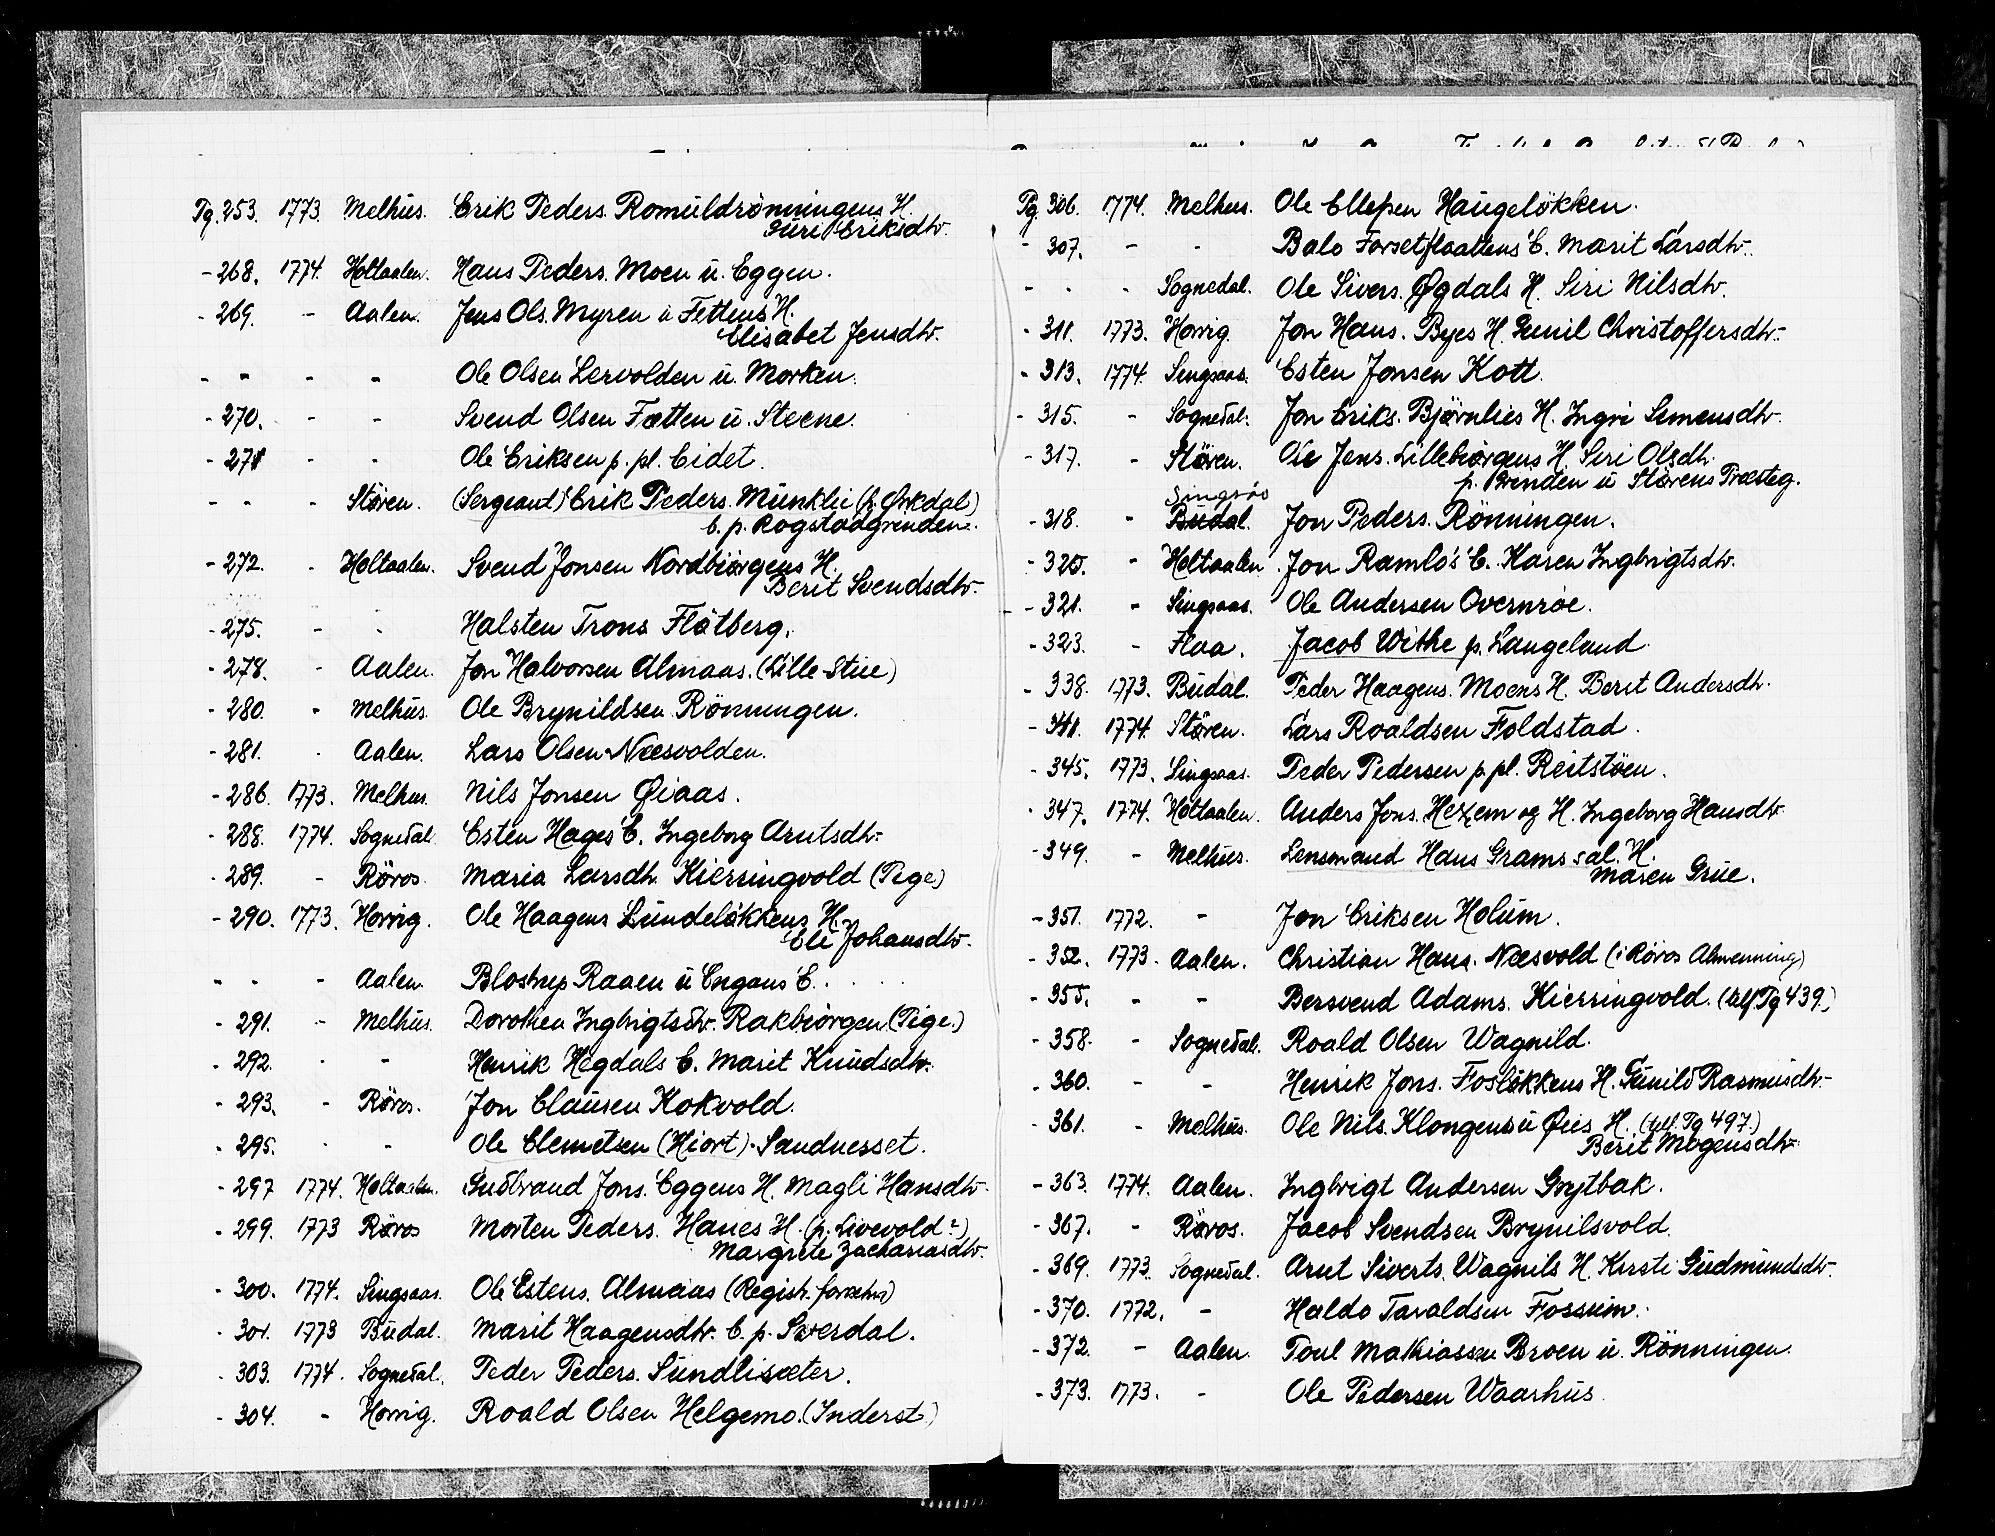 Pg. 253. 1773. Melhus. Erik Peders. Romuldrönningens H.
Guri Eriksdtr.
- 268. 1774. Holtaalen. Hans Peders. Moen u. Eggen.
- 269. - Aalen. Jens Ols. Myren u Fettens H.
Elisabet Jensdtr.
- - - - Ole Olsen Lervolden u. Morken.
- 270. - - Svend Olsen Fætten u. Steene.
- 271 - - Ole Eriksen p. pl. Eidet.
- - - Stören. (Sergeant) Erik Peders. Munklii (p. Ørkdal)
E. p. Rogstadgrenden.
- 272. - Holtaalen. Svend Jonsen Nordbiörgens H.
Berit Svendsdtr.
- 275. - - Halsten Trons Flåtberg.
- 278. - Aalen. Jon Halvorsen Almaas. (Lille-Stue)
- 280. - Melhus. Ole Brynildsen Rönningen.
- 281. - Aalen. Lars Olsen Næsvolden.
- 286. 1773. Melhus. Nils Jonsen Øiaas.
- 288. 1774. Sognedal. Esten Hages E. Ingeborg Arntsdtr.
- 289. - Röros. Maria Larsdtr. Kierringvold (Pige)
- 290. 1773. Horrig. Ole Haagens Lundelökkens H.
Eli Johansdtr.
- - - Aalen. Blostrup Raaen u Engans E.
- 291. - Melhus. Dorothea Ingbrigtsdtr. Rakbiörgen (Pige.)
- 292. - - Henrik Hegdals E. Marit Knudsdtr.
- 293. - Röros. Jon Clausen Kokvold.
- 295. - - Ole Clemetsen (Hiort) Sandnesset.
- 297 1774. Holtaalen. Gudbrand Jons. Eggens H. Magli Hansdtr.
- 299. 1773 Röros Morten Peders. Hanes H. (p. Livevold?)
Margrete Zachariasdtr.
- 300. 1774. Singsaas. Ole Estens. Almaas (Registr. )
- 301. 1773 Budal. Marit Haagensdtr. E. p. Sverdal.
- 303. 1774. Sognedal. Peder Peders. Sundlisæter.
- 304. - Horrig. Roald Olsen Helgemo. (Inderst)
Pg. 306. 1774. Melhus. Ole Ellefsen Haugelökken.
- 307. - - Balo Forsetflaattens E. Marit Larsdtr.
- - - Sognedal. Ole Sivers. Øgdals H. Siri Nilsdtr.
- 311. 1773. Horrig. Jon Hans. Byes H. Gunil Christoffersdtr.
- 313. 1774. Singsaas. Esten Jonsen Kott.
- 315. - Sognedal. Jon Eriks. Björnlies H. Ingri Simensdtr.
- 317. - Stören. Ole Jens. Lillebiörgens H. Siri Olsdtr.
p. Brenden u Störens Præsteg.
Singsås
- 318. - Budal. Jon Peders. Rönningen.
- 320. - Holtaalen. Jon Ramlo's E. Karen Ingbrigtsdtr.
- 321. - Singsaas. Ole Andersen Overnröe.
- 323. - Flaa. Jacob Withe p. Langeland.
- 338. 1773. Budal. Peder Haagens. Moens H. Berit Andersdtr.
- 341. 1774. Stören. Lars Roaldsen Foldstad.
- 345. 1773. Singsaas. Peder Pedersen p. pl. Reitstöen.
- 347. 1774. Holtaalen. Anders Jons. Hexem og H. Ingeborg Hansdtr.
- 349. - Melhus. Lensmand Hans Grams sal. H.
Maren Grüe.
- 351. 1772. - Jon Eriksen Holum.
- 352. 1773. Aalen. Christian Hans. Næsvold (i Röros Almenning)
- 355. - - Bersvend Adams. Kierringvold. (tilf. Pg 439.)
- 358. - Sognedal. Roald Olsen Wagnild.
- 360. - - Henrik Jons. Foslökkens H. Gunild Rasmusdtr.
- 361. - Melhus. Ole Nils. Klongens u Øies H. (tilf. Pg 497.)
Berit Mogensdtr.
- 363. 1774. Aalen. Ingbrigt Andersen Grytbak.
- 367. - Röros. Jacob Svendsen Brynilsvold.
- 369. 1773. Sognedal. Arnt Siverts. Wagnils H. Kirsti Gudmundsdtr.
- 370. 1772. - Haldo Taraldsen Fossum.
- 372. - Aalen. Poul Mathiassen Broen u. Rönningen.
- 373. 1773. - Ole Pedersen Waarhus.